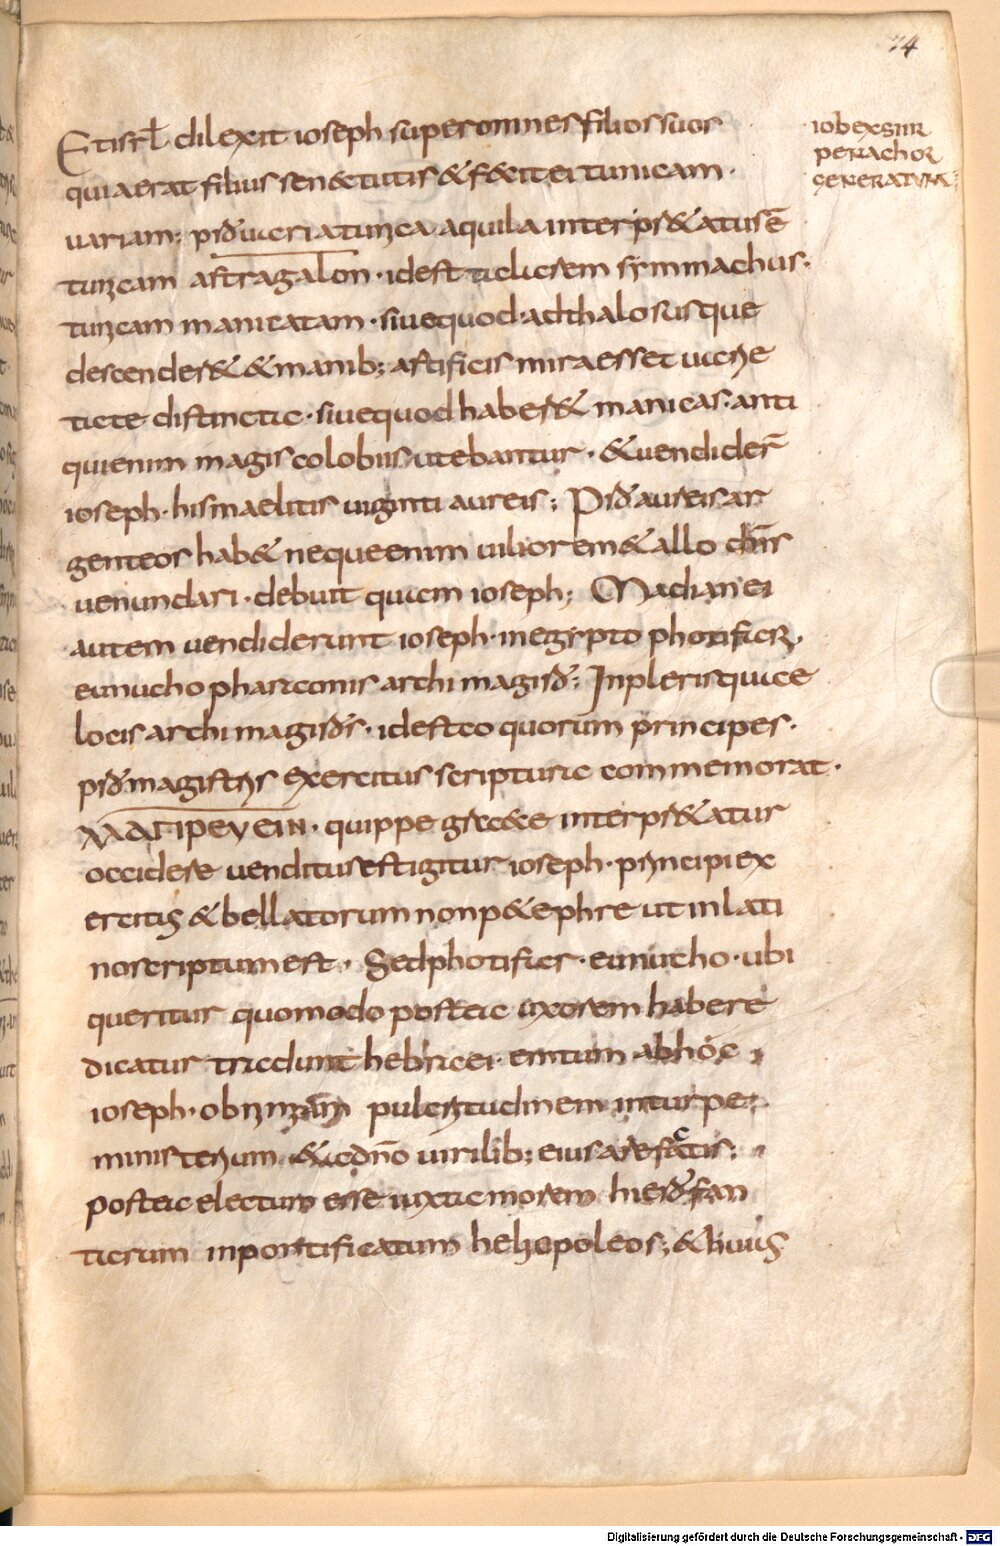 74
Et isrl dilexit ioseph super omnes filios suos
quia erat filius senectutis & fecit ei tunicam.
uariam; pro uaria tunica aquila interpretatus ē
tunicam astragalon · idest talarem symmachus.
tunicam manicatam · siue quod ad thalos usque
descenderet & manib; artificis mira esset uarie
tate distincta · siue quod haberet manicas · anti
qui enim magis colobiis utebantur · & uendider̄
ioseph · hismaelitis uiginti aureis; Pro aureis ar
genteos hab& neque enim uiliore m&allo dn̄s
uenundari · debuit quam ioseph; Madianei
autem uendiderunt ioseph · in egypto photifar,
eunucho pharaonis archimagiro; In plerisque
locis archimagiros · idest coquorum principes ·
pro magistris exercitus scriptura commemorat ·
ΜΑΓΙΡΕΥΕΙΝ · quippe grece interpretatur
occidere uenditus est igitur ioseph · principi ex
ercitus & bellatorum non p&ephre ut in lati
no scriptum est · Sed photifar · eunucho · ubi
queritur quomodo postea uxorem habere
dicatur tradunt hebraei · emtum ab hoc
ioseph · ob nimiam pulcritudinem in turpe
ministerium & a dn̄o uirilib; eius arefactis;
postea electum esse iuxta morem hierofan
tarum in pontificatum heliopoleos; & huius
iob ex stir
pe nachor
generatum
Digitalisierung gefördert durch die Deutsche Forschungsgemeinschaft - DFG